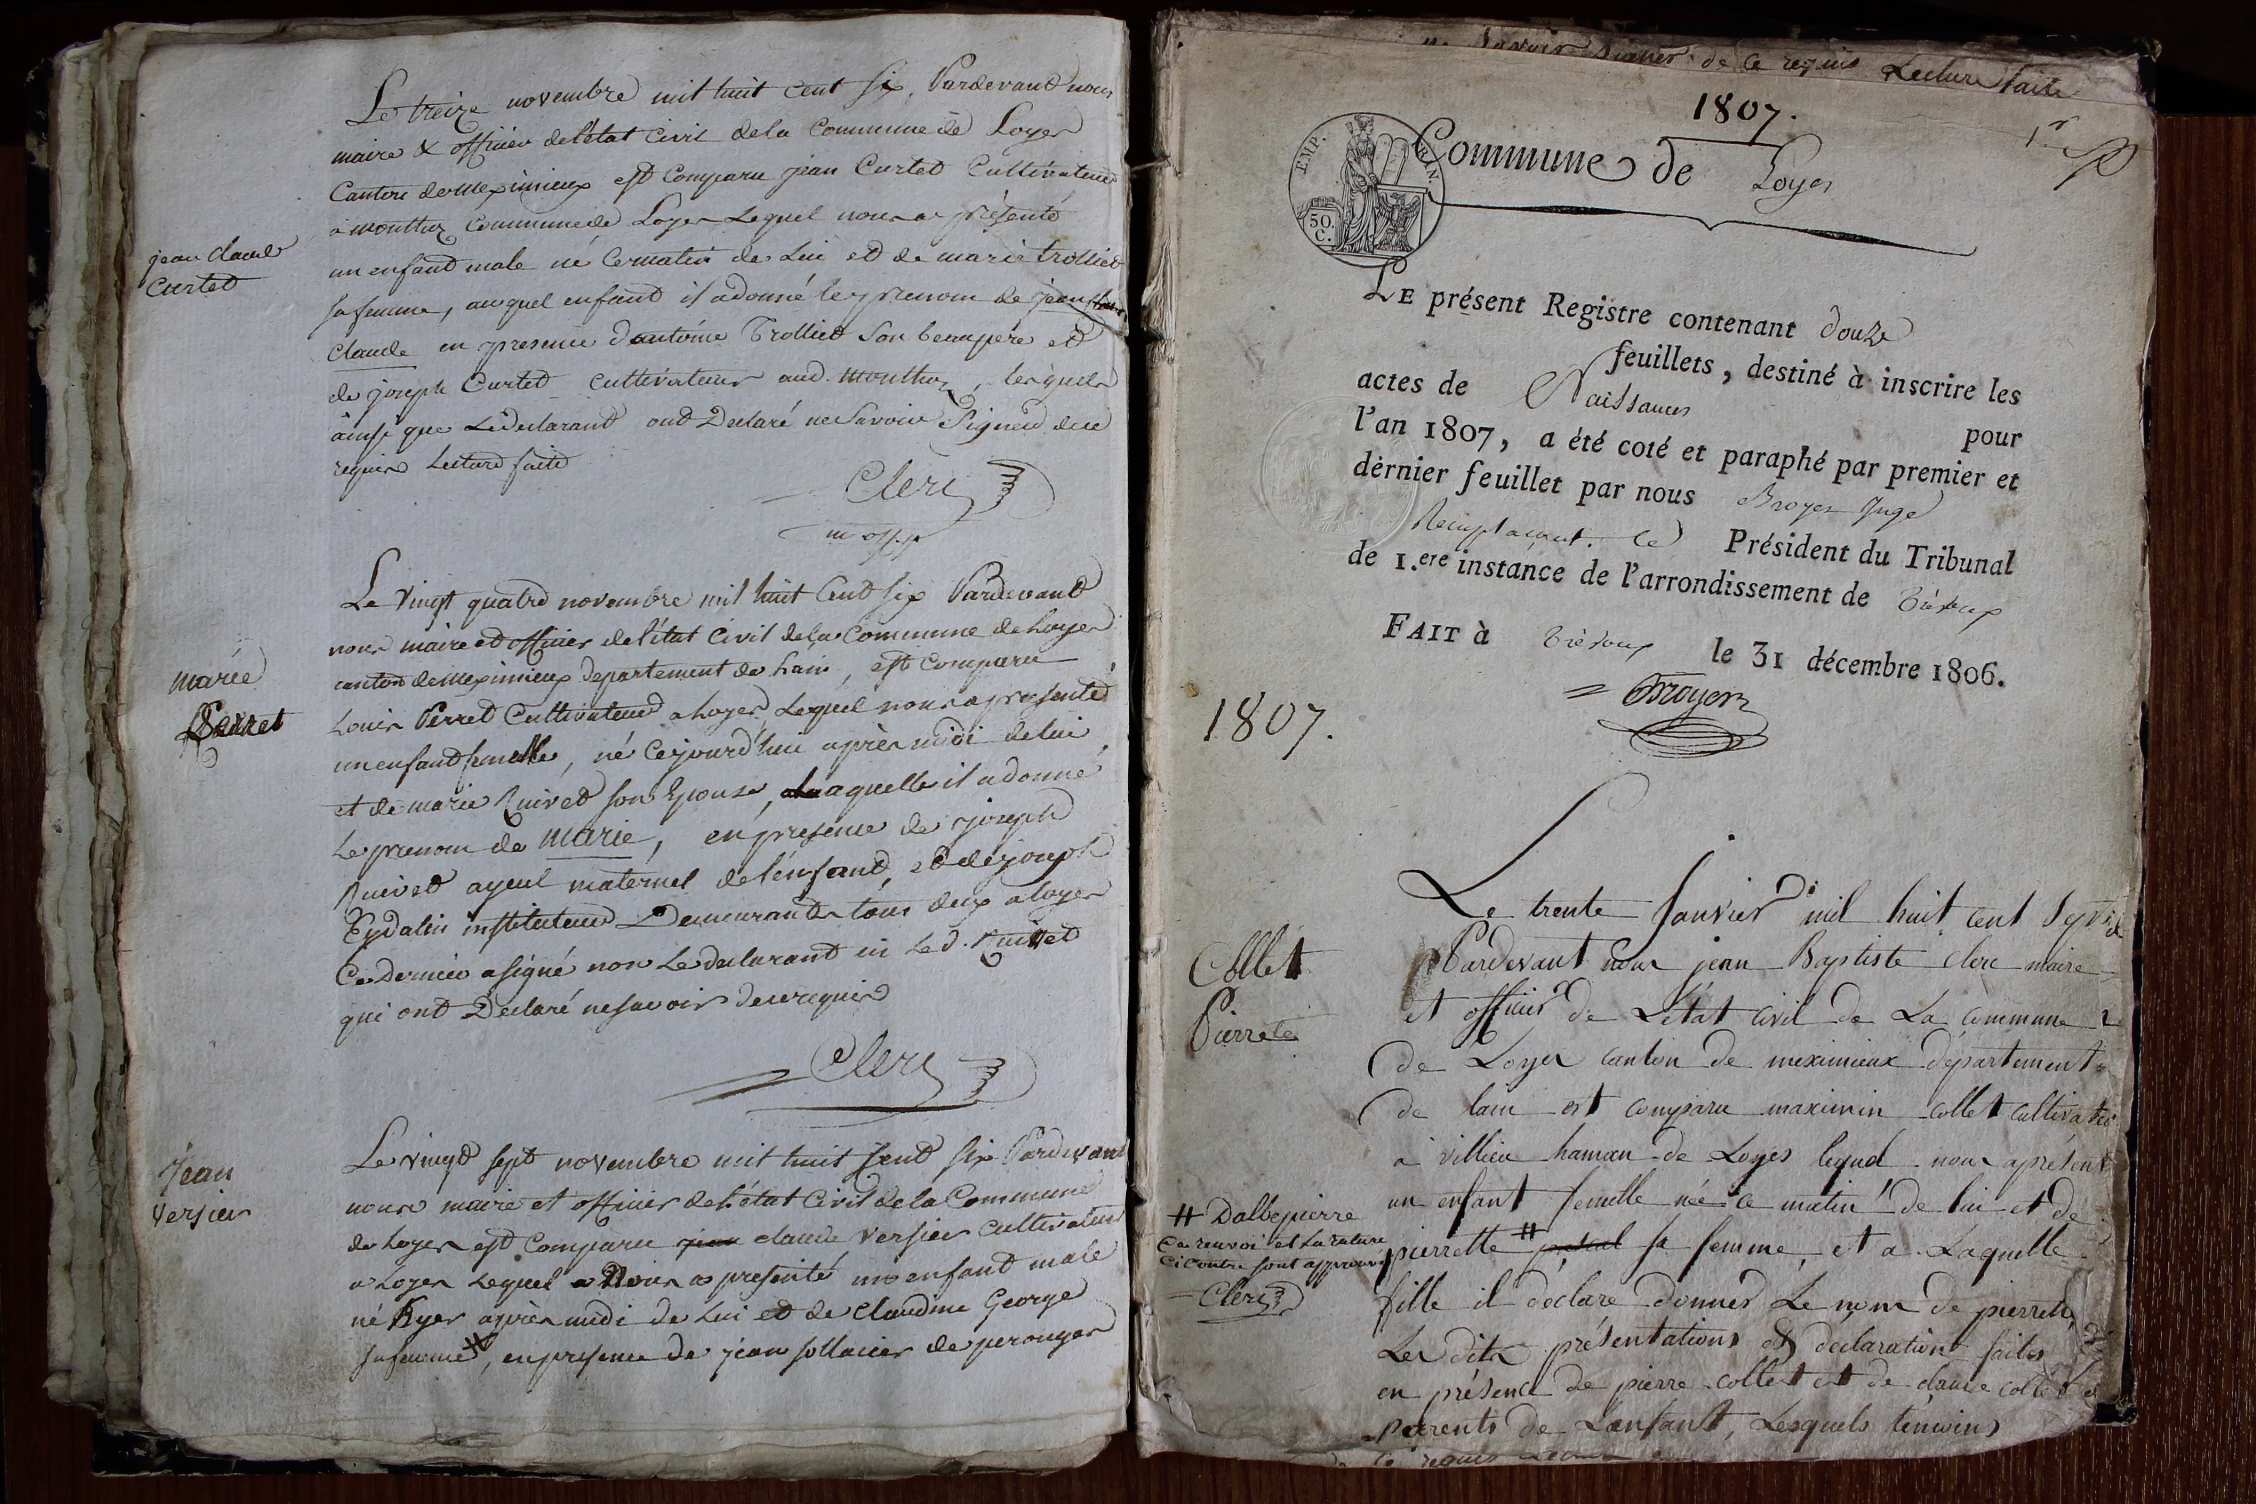 Le treize novembre mil huit cent six, Pardevant nous
maire & officier de l'état civil de la commune de Loyes
Canton de meximieux est comparu jean Curtet Cultivateur
à monthoz commune de Loyes Lequel nous a présenté
jean Claude
Curtet
un enfant male né ce matin de Lui et de marie trolliet
sa femme, auquel enfant il a donné le prenom de jean
claude en presence d'antoine Trolliet son beaupere et
de joseph Curtet cultivateurs aud. monthoz, lesquels
ainsi que Le declarant ont Declaré ne Savoir Signer de ce
requis Lecture faite
Clerc
Le Vingt quatre novembre mil huit Cent six Pardevant
nous maire et officier de l'état Civil de la Commune de Loyes
canton de meximieux departement de Lain, est comparu
marie
Perret
Louis Perret Cultivateur a Loyes Lequel nous a presenté
un enfant femelle, né cejourd'hui après midi de lui
et de marie Ruivet son Epouse, a laquelle il a donné
Le prenom de marie, en presence de joseph
Ruivet ayeul maternel de l'enfant, et de joseph
Eydalin instituteur Demeurants tous deux a loyes
Ce dernier a signé non Le declarant ni Led. Ruivet
qui ont Declaré ne savoir de ce requis
Clerc
Jean
Versier
Le vingt sept novembre mil huit Cent six Pardevant
nous maire et officier de l'état Civil de la Commune
de Loyes est Comparu jean claude Versier cultivateur
a Loyes Lequel a Nous a presenté un enfant male
né hyer après midi de Lui et de Claudine George
sa femme #, en presence de jean sollacier de perouges
ne savoir signer de ce requis Lecture faite
1807.
1r
TIMP. 50. C.
Commune de Loyes
LE présent Registre contenant douze
feuillets, destiné à inscrire les
actes de Naissances pour
l'an 1807, a été coté et paraphé par premier et
dernier feuillet par nous Broyer Juge
Remplacant le Président du Tribunal
de 1.ere instance de l'arrondissement de Trévoux
FAIT à Trévoux le 31 décembre 1806.
Broyer
1807.
Le trente Janvier mil huit cent Sept
Collet
Pierrete
Pardevant nous jean Baptiste clerc maire
et officier de L'état civil de La commune
de Loyes canton de meximieux département
de lain est comparu maximin collet cultivateur
à villieu hameau de Loyes lequel nous a présenté
un enfant femelle née ce matin de lui et de
# Dalbepierre
Ce renvoi et La rature
Ci contre sont approuvé
Clerc
pierrette # sa femme, et a Laquelle
fille il déclare donner Le nom de pierrete
Les dites présentations et declaration faites
en présence de pierre collet et de claude collet
parents de L'enfant, Lesquels témoins